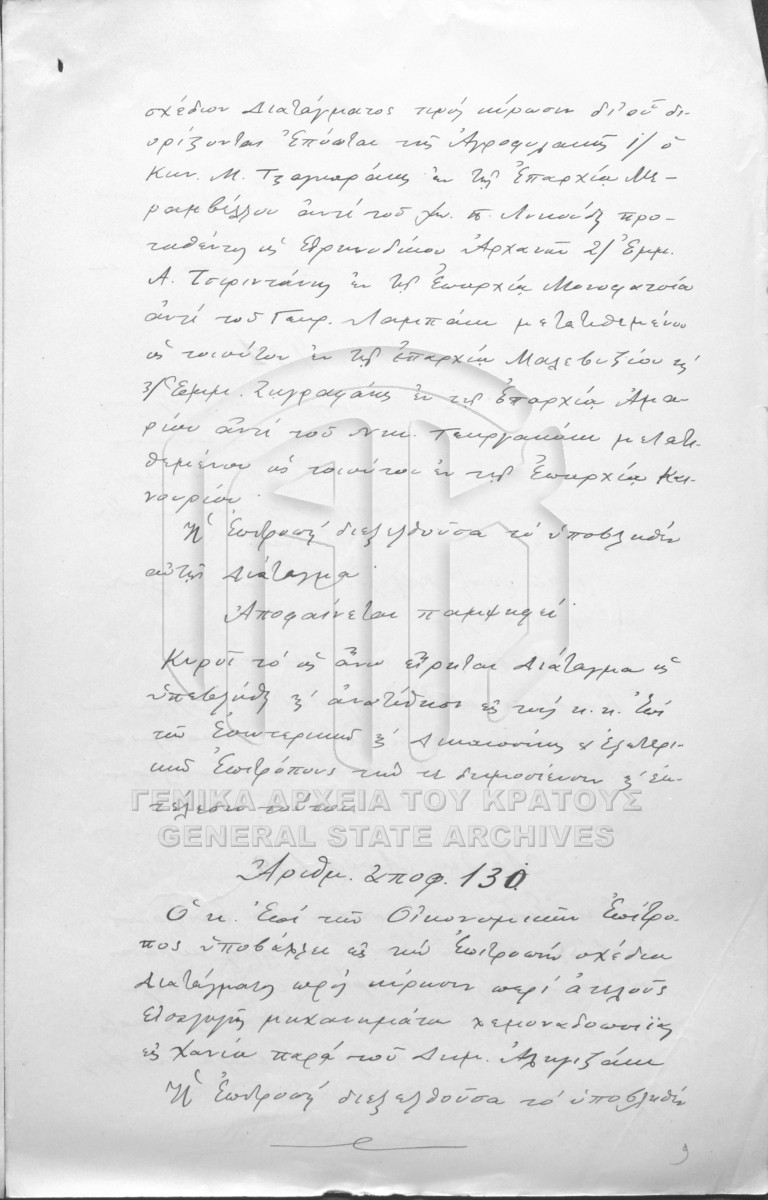 σχέδιον Διατάγματος πρὸς κύρωσιν δι' οὗ δι-
ορίζονται Ἐπόπται τῆς Ἀγροφυλακῆς 1/ ὁ
Κων. Μ. Τζαγκαράκης ἐν τῇ Ἐπαρχίᾳ Με-
ραμβέλλου ἀντὶ τοῦ Π. προ-
ταθέντος ὡς Εἰρηνοδίκου Ἀρχανῶν 2/ Ἐμμ.
Α. Τσιριντάνης ἐν τῇ Ἐπαρχίᾳ Μονοφατσίου
ἀντὶ τοῦ Γεωρ. Λαμπάκη μετατιθεμένου
ὡς τοιούτου ἐν τῇ Ἐπαρχίᾳ Μαλεβυζίου κ'
3/ Ἐμμ. Ζωγραφάκης ἐν τῇ Ἐπαρχίᾳ Ἀμα-
ρίου ἀντὶ τοῦ Νικ. Γεωργακάκη μετατι-
θεμένου ὡς τοιούτου ἐν τῇ Ἐπαρχίᾳ Και-
νουρίου.
Ἡ Ἐπιτροπὴ διεξελθοῦσα τὸ ὑποβληθὲν
αὐτῇ Διάταγμα
Ἀποφαίνεται παμψηφεί
Κυροῖ τὸ ὡς ἄνω εἴρηται Διάταγμα ὡς
ὑπεβλήθη κ' ἀνατίθησι εἰς τοὺς κ.κ. Ἐπὶ
τῶν Ἐσωτερικῶν κ' Δικαιοσύνης κ' Ἐξωτερι-
κῶν Ἐπιτρόπους τὴν τε δημοσίευσιν κ' ἐκ-
τέλεσιν τούτου
ΓΕΝΙΚΑ ΑΡΧΕΙΑ ΤΟΥ ΚΡΑΤΟΥΣ
GENERAL STATE ARCHIVES
Ἀριθμ. Ἀποφ. 130
Ὁ κ. Ἐπὶ τῶν Οἰκονομικῶν Ἐπίτρο-
πος ὑποβάλλει εἰς τὴν Ἐπιτροπὴν σχέδιον
Διατάγματος πρὸς κύρωσιν περὶ ἀτελοῦς
εἰσαγωγῆς μηχανημάτων λεμοναδοποιΐας
εἰς Χανία παρὰ τοῦ Δημ. Ἀληγιζάκη
Ἡ Ἐπιτροπὴ διεξελθοῦσα τὸ ὑποβληθὲν